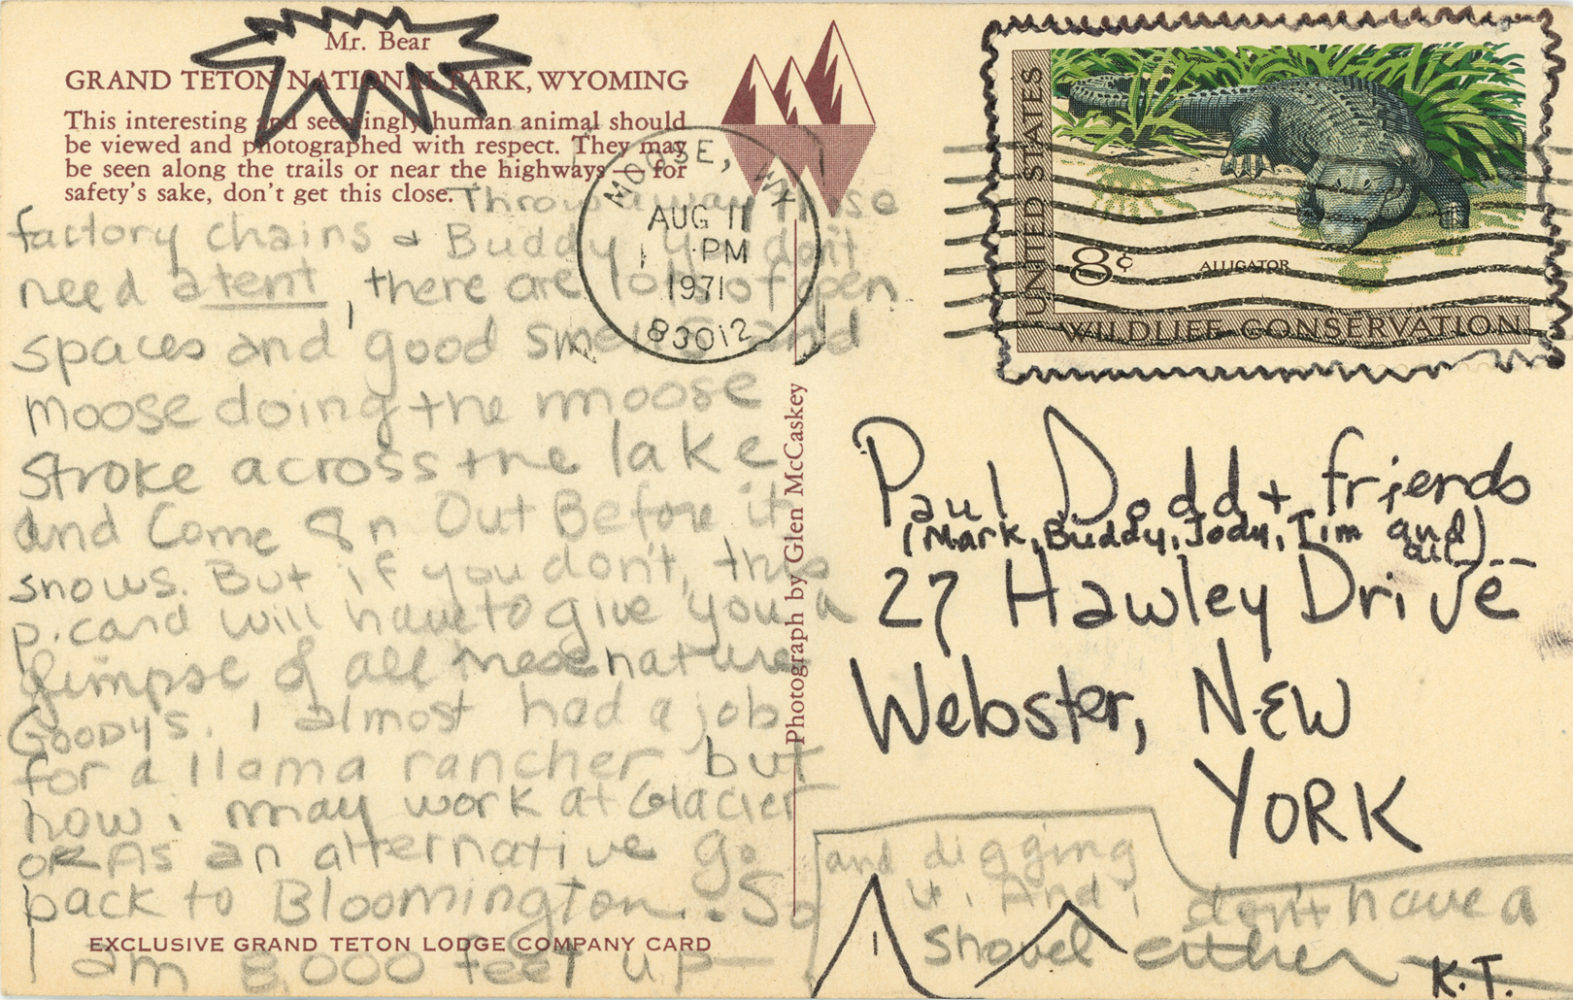 Mr. Bear
GRAND TETON NATIONAL PARK, WYOMING
This interesting and seemingly human animal should
be viewed and photographed with respect. They may
be seen along the trails or near the highways — for
safety's sake, don't get this close.
Throw away those
factory chains & Buddy you don't
need a tent, there are lots of open
spaces and good smells and
moose doing the moose
stroke across the lake
and Come On Out Before it
snows. But if you don't, this
p.card will have to give you a
glimpse of all these nature
Goodys. I almost had a job
for a llama rancher but
now i may work at Glacier
OR AS an alternative go
back to Bloomington... So
I am 8,000 feet up—
EXCLUSIVE GRAND TETON LODGE COMPANY CARD
and digging
it. And i don't have a
shovel either
K.T.
Photograph by Glen McCaskey
MOOSE, WY
AUG 11
PM
1971
83012
UNITED STATES
8¢
ALLIGATOR
WILDLIFE CONSERVATION
Paul Dodd + friends
(Mark, Buddy, Jody, Tim and
all)
27 Hawley Drive
Webster, NEW
YORK